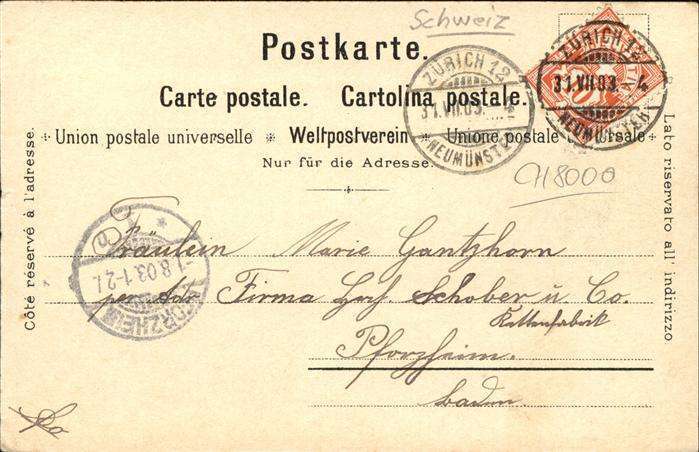 Schweiz
Postkarte.
Carte postale. Cartolina postale.
Union postale universelle * Weltpostverein * Unione postale universale
Nur für die Adresse.
ZÜRICH 12
31.VII.03. 4
NEUMÜNSTER
ZÜRICH 12
31.VII.03. 4
NEUMÜNSTER
CH8000
Côté réservé à l'adresse.
Lato riservato all' indirizzo
PFORZHEIM
1.8.03.1-2
Fräulein Marie Gantzhorn
per Adr Firma Schober u. Co.
Kettenfabrik
Pforzheim.
Baden